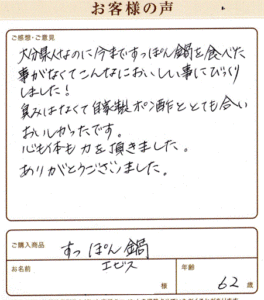 お客様の声
ご感想・ご意見
大分県人なのに今まですっぽん鍋を食べた
事がなくてこんなにおいしい事にびっくり
しました!
臭みはなくて自家製ポン酢ととても合い
おいしかったです。
心も体も力を頂きました。
ありがとうございました。
ご購入商品
すっぽん鍋
お名前
エビス
様
年齢
62
歳